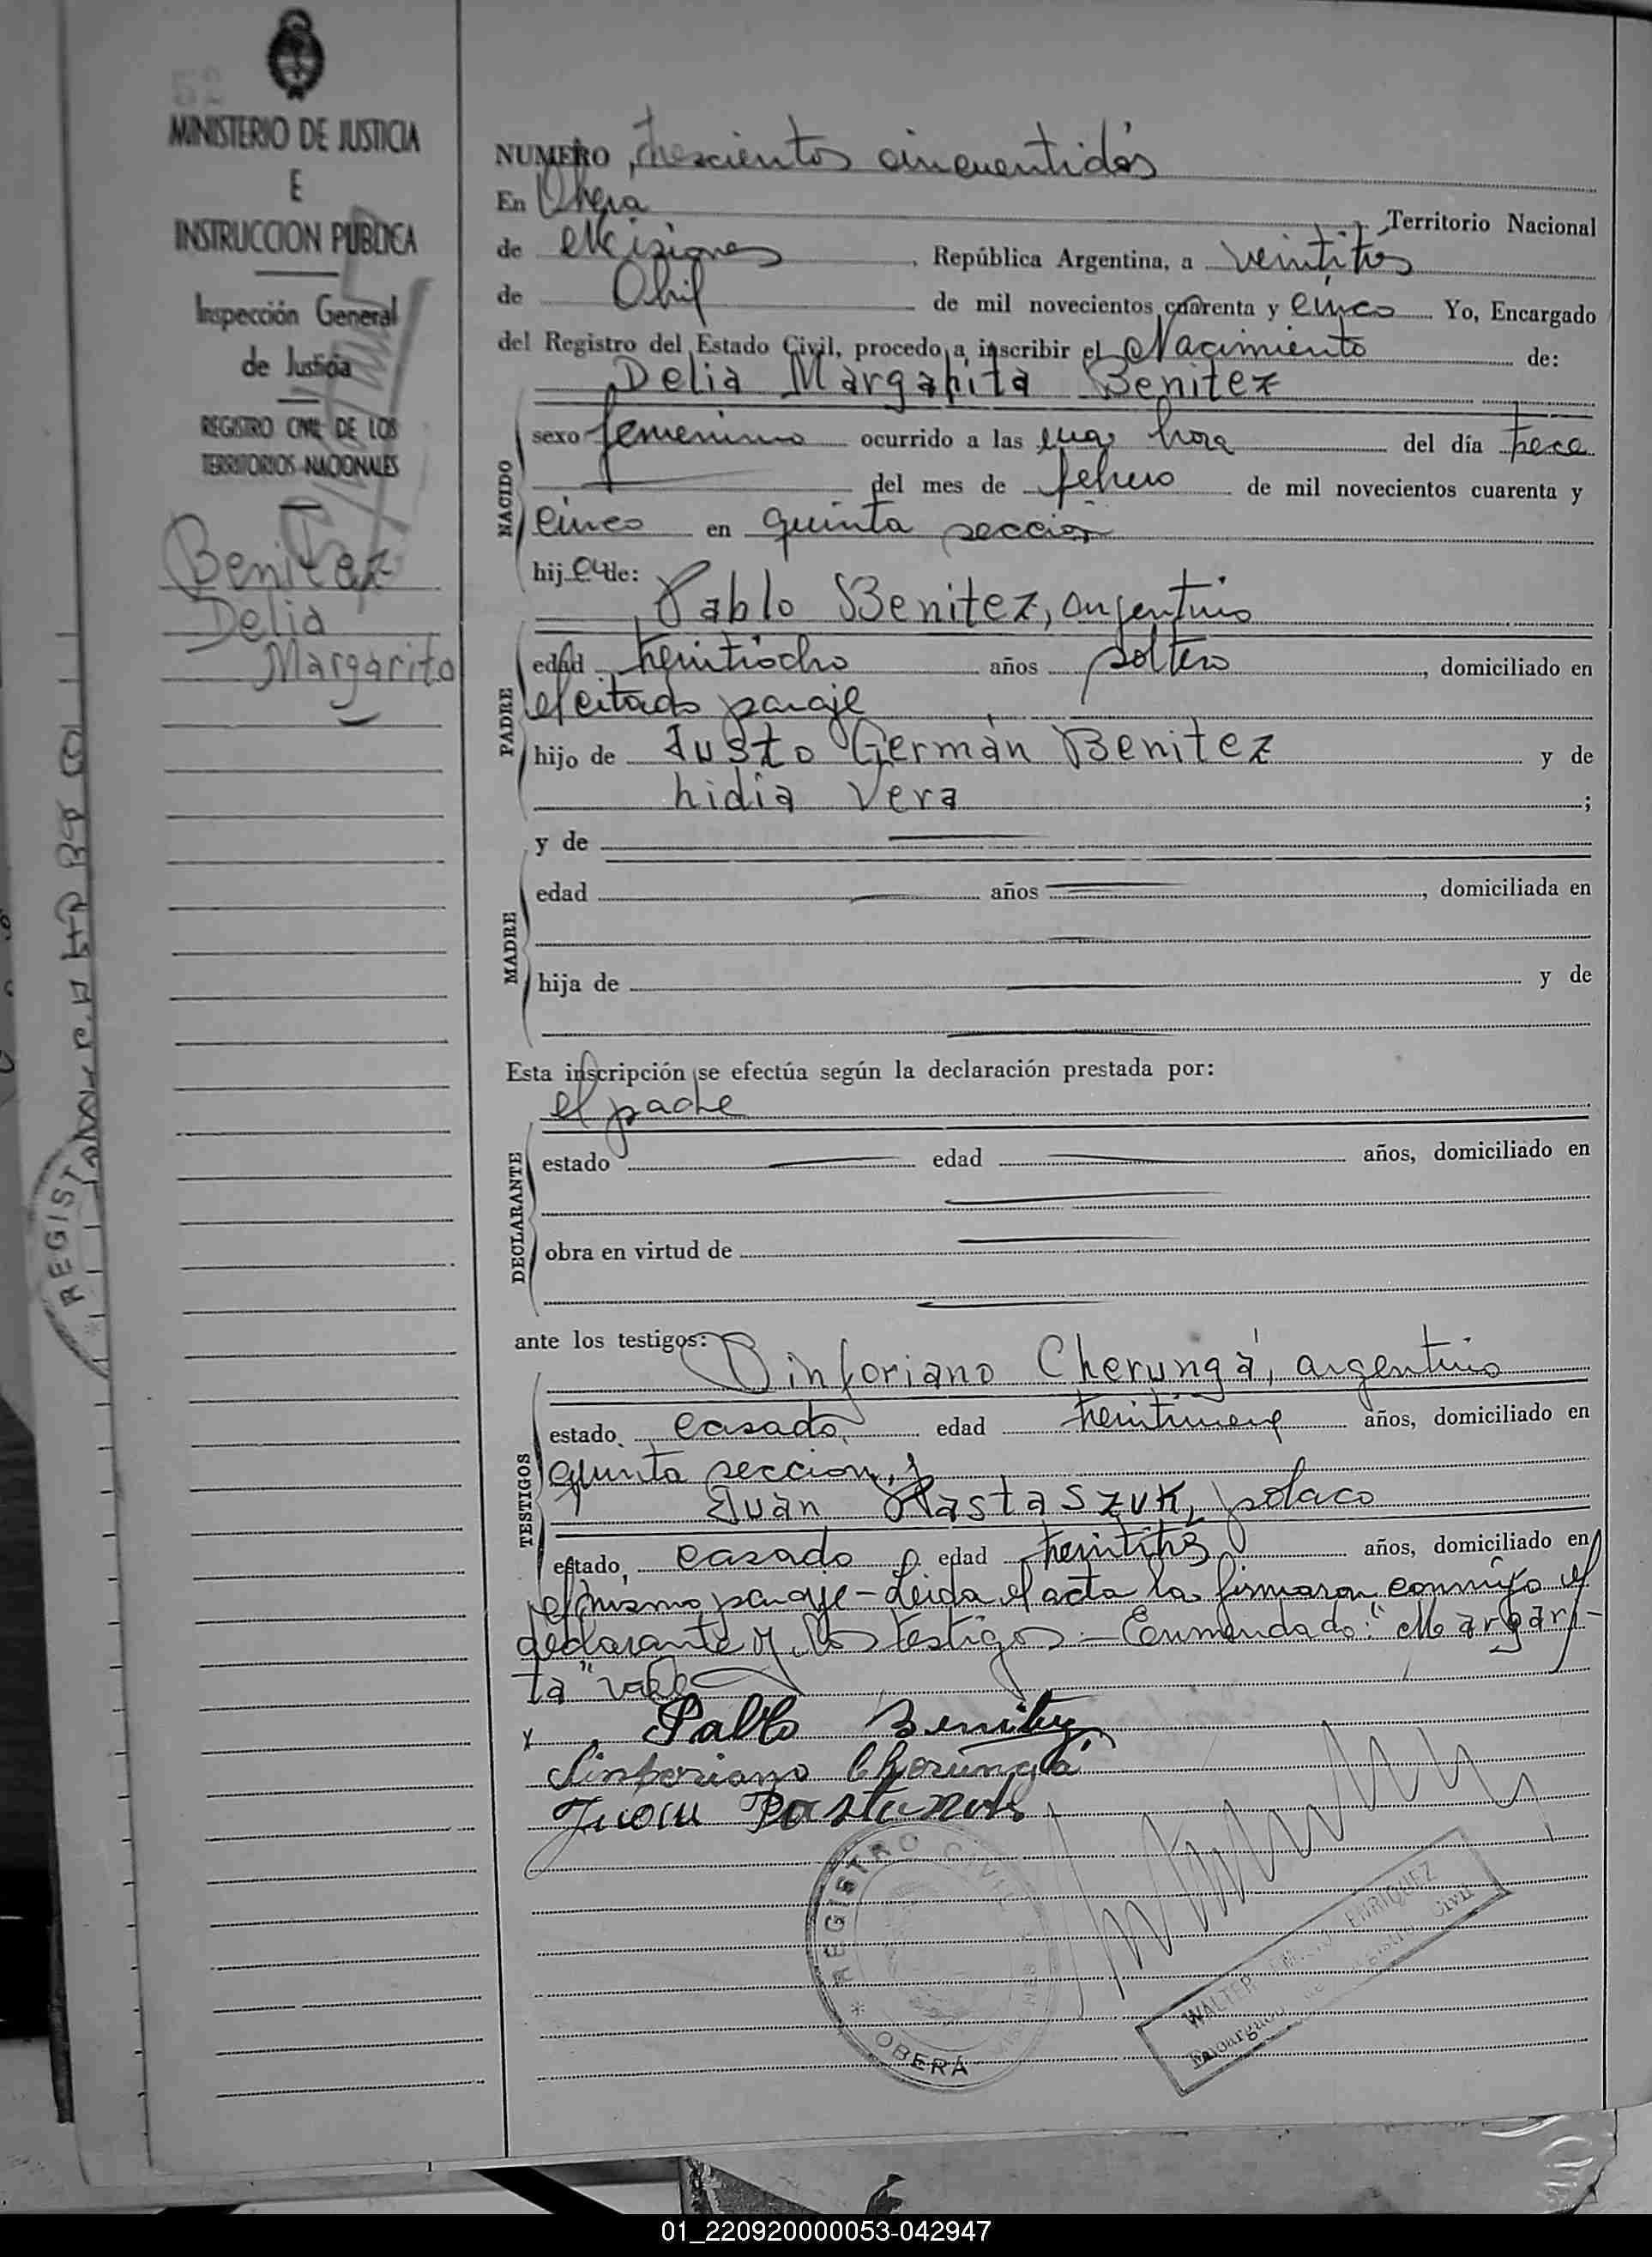 MINISTERIO DE JUSTICIA
E
INSTRUCCION PUBLICA
Inspección General
de Justicia
REGISTRO CIVIL DE LOS
TERRITORIOS NACIONALES
Benitez
Delia
Margarita
NUMERO trescientos cincuentidós
En Obera Territorio Nacional
de Misiones, República Argentina, a veintitres
de Abril de mil novecientos cuarenta y cinco Yo, Encargado
del Registro del Estado Civil, procedo a inscribir el Nacimiento de:
Delia Margarita Benitez
NACIDO
sexo femenino ocurrido a las una hora del día trece
del mes de febrero de mil novecientos cuarenta y
cinco en quinta sección
hij de:
Pablo Benitez, argentino
PADRE
edad treintiocho años soltero, domiciliado en
el citado paraje
hijo de Justo Germán Benitez y de
Lidia Vera ;
y de
MADRE
edad años , domiciliada en
hija de y de
Esta inscripción se efectúa según la declaración prestada por:
el padre
DECLARANTE
estado edad años, domiciliado en
obra en virtud de
ante los testigos:
Sinforiano Cherungá, argentino
TESTIGOS
estado casado, edad treintinueve años, domiciliado en
quinta sección, y
Juan Pastaszuk, polaco
estado, casado edad treintitres años, domiciliado en
el mismo paraje - Leida el acta la firmaron conmigo el
declarante y los testigos - Enmendado: "Margari-
ta" vale
x Pablo Benitez
Sinforiano Cherungá
Juan
REGISTRO CIVIL
OBERÁ
WALTER ENRIQUEZ
Encargado de Registro Civil
REGIST
01_220920000053-042947